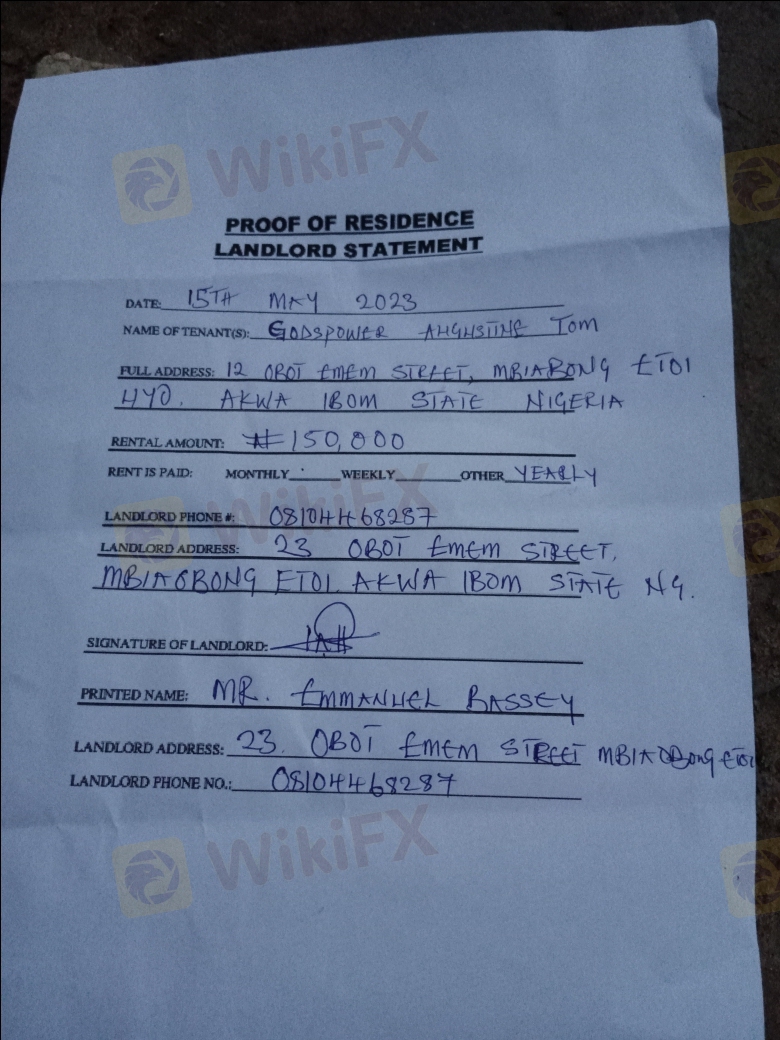 WikiFX
PROOF OF RESIDENCE
LANDLORD STATEMENT
DATE: 15TH MAY 2023
NAME OF TENANT(S): GODSPOWER AUGUSTINE TOM
FULL ADDRESS: 12 OBOT EMEM STREET, MBIABONG ETOI
UYO. AKWA IBOM STATE NIGERIA
RENTAL AMOUNT: ₦150,000
RENT IS PAID: MONTHLY WEEKLY OTHER YEARLY
WikiFX
LANDLORD PHONE #: 08104468287
LANDLORD ADDRESS: 23 OBOT EMEM STREET,
MBIAOBONG ETOI AKWA IBOM STATE NG.
SIGNATURE OF LANDLORD:
PRINTED NAME: MR. EMMANUEL BASSEY
LANDLORD ADDRESS: 23. OBOT EMEM STREET MBIAOBONG ETOI
LANDLORD PHONE NO.: 08104468287
WikiFX